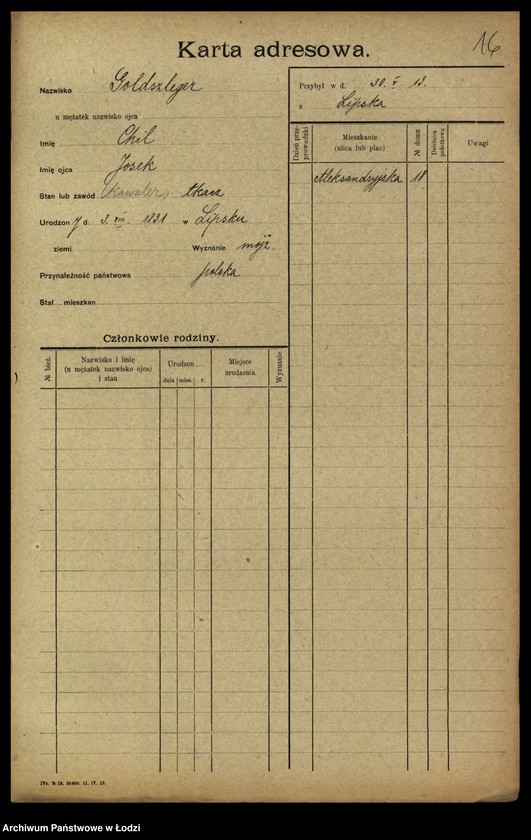 16
Karta adresowa.
Nazwisko Goldszleger
u mężatek nazwisko ojca
Imię Chil
Imię ojca Josek
Stan lub zawód (kawaler) tkacz
Urodzon y d. 3. VIII. 1891 w Lipsku
ziemi Wyznanie mojż.
Przynależność państwowa polska
Stał. mieszkan
Przybył w d. 30. V 13.
z Lipska
Dzień przeprowadzki
Mieszkanie (ulica lub plac)
№ domu
Dzielnica podatkowa
Uwagi
Aleksandryjska 18
Członkowie rodziny.
№ bież.
Nazwisko i imię
(u mężatek nazwisko ojca)
i stan
Urodzon
dnia mies. r.
Miejsce
urodzenia
Wyznanie
Archiwum Państwowe w Łodzi